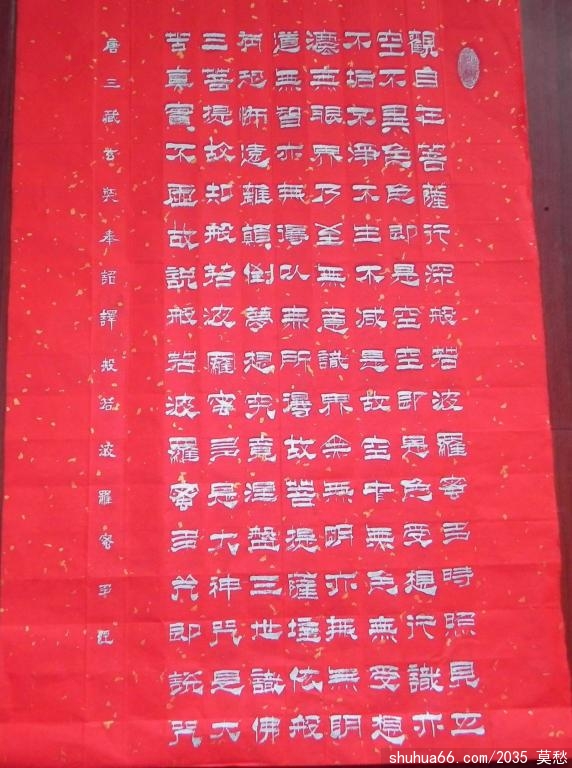 觀自在菩薩行深般若波羅蜜多時照見五
空不異色色即是空空即是色受想行識亦
不垢不淨不生不减是故空中無色無受想
灋無眼界乃至無意識界無無明亦無無明
道無智亦無得以無所得故菩提薩埵依般
有恐怖遠離顛倒夢想究竟涅盤三世諸佛
三菩提故知般若波羅蜜多是大神咒是大
苦真實不虛故說般若波羅蜜多咒即說咒
唐三藏玄奘奉詔譯般若波羅蜜多心經
shuhua66.com/2035 莫愁